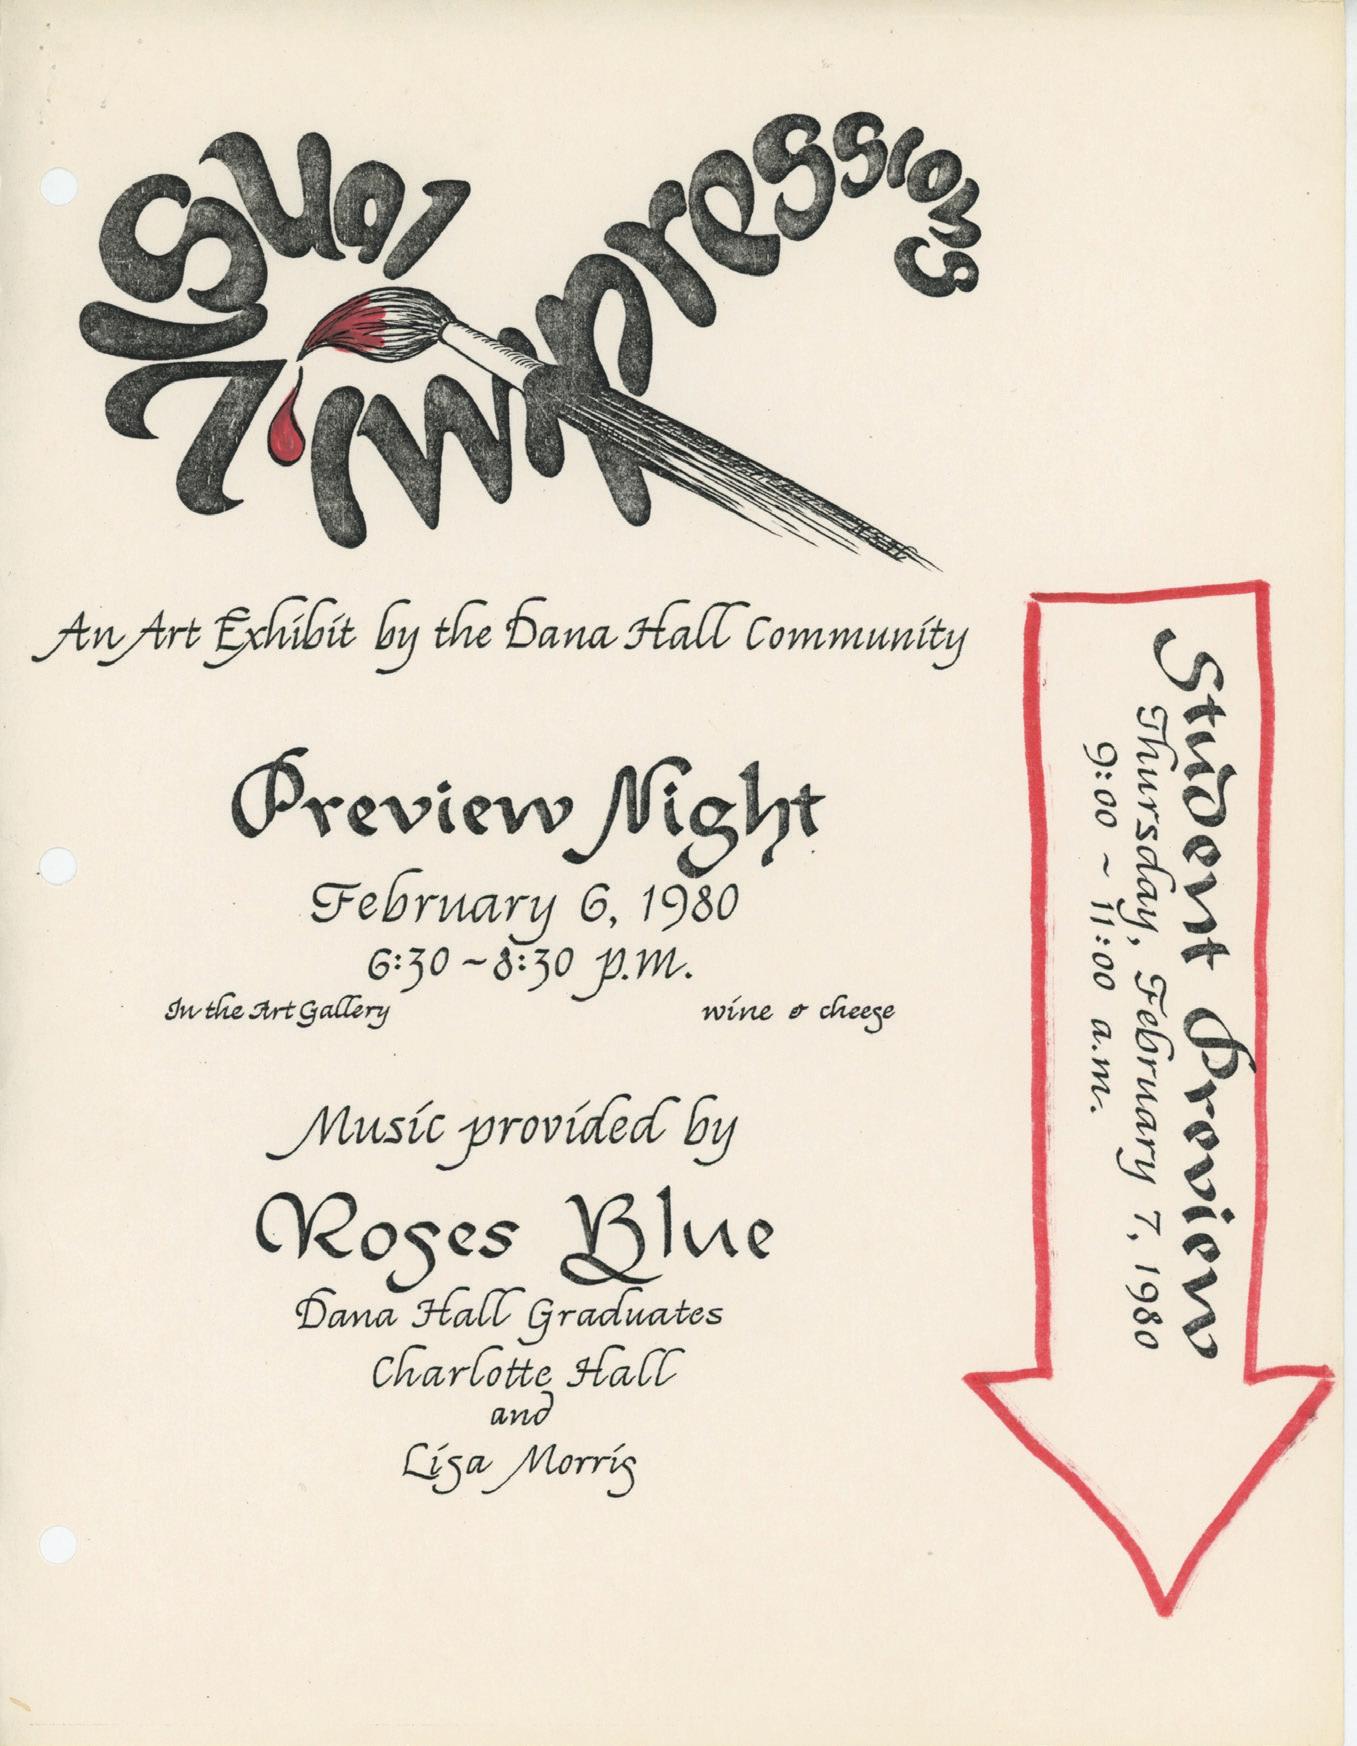 Visual
Impressions
An Art Exhibit by the Dana Hall Community
Preview Night
February 6, 1980
6:30 ~ 8:30 p.m.
In the Art Gallery
wine & cheese
Music provided by
Roses Blue
Dana Hall Graduates
Charlotte Hall
and
Lisa Morris
Student Preview
Thursday, February 7, 1980
9:00 ~ 11:00 a.m.